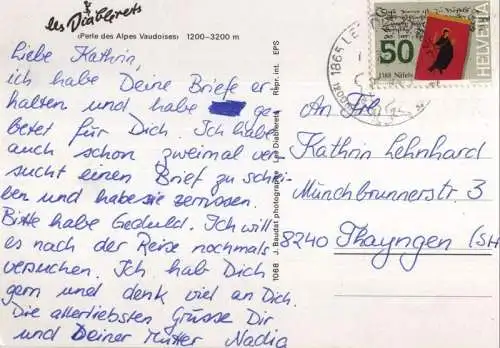 les Diablerets
(Perle des Alpes Vaudoises) 1200-3200 m
Liebe Kathrin,
ich habe Deine Briefe er-
halten und habe ge-
betet für Dich. Ich habe
auch schon zweimal ver-
sucht einen Brief zu schrei-
ben und habe sie zerrissen.
Bitte habe Geduld. Ich will
es nach der Reise nochmals
versuchen. Ich hab Dich
gern und denk viel an Dich.
Die allerliebsten Grüsse Dir
und Deiner Mutter Nadia
1068 J. Baudat photographe Les Diablerets Repr. int. EPS
1865 LE
HELVETIA
50
1388 Näfels
An Frl.
Kathrin Lehnhard
Münchbrunnerstr. 3
8240 Thayngen (SH